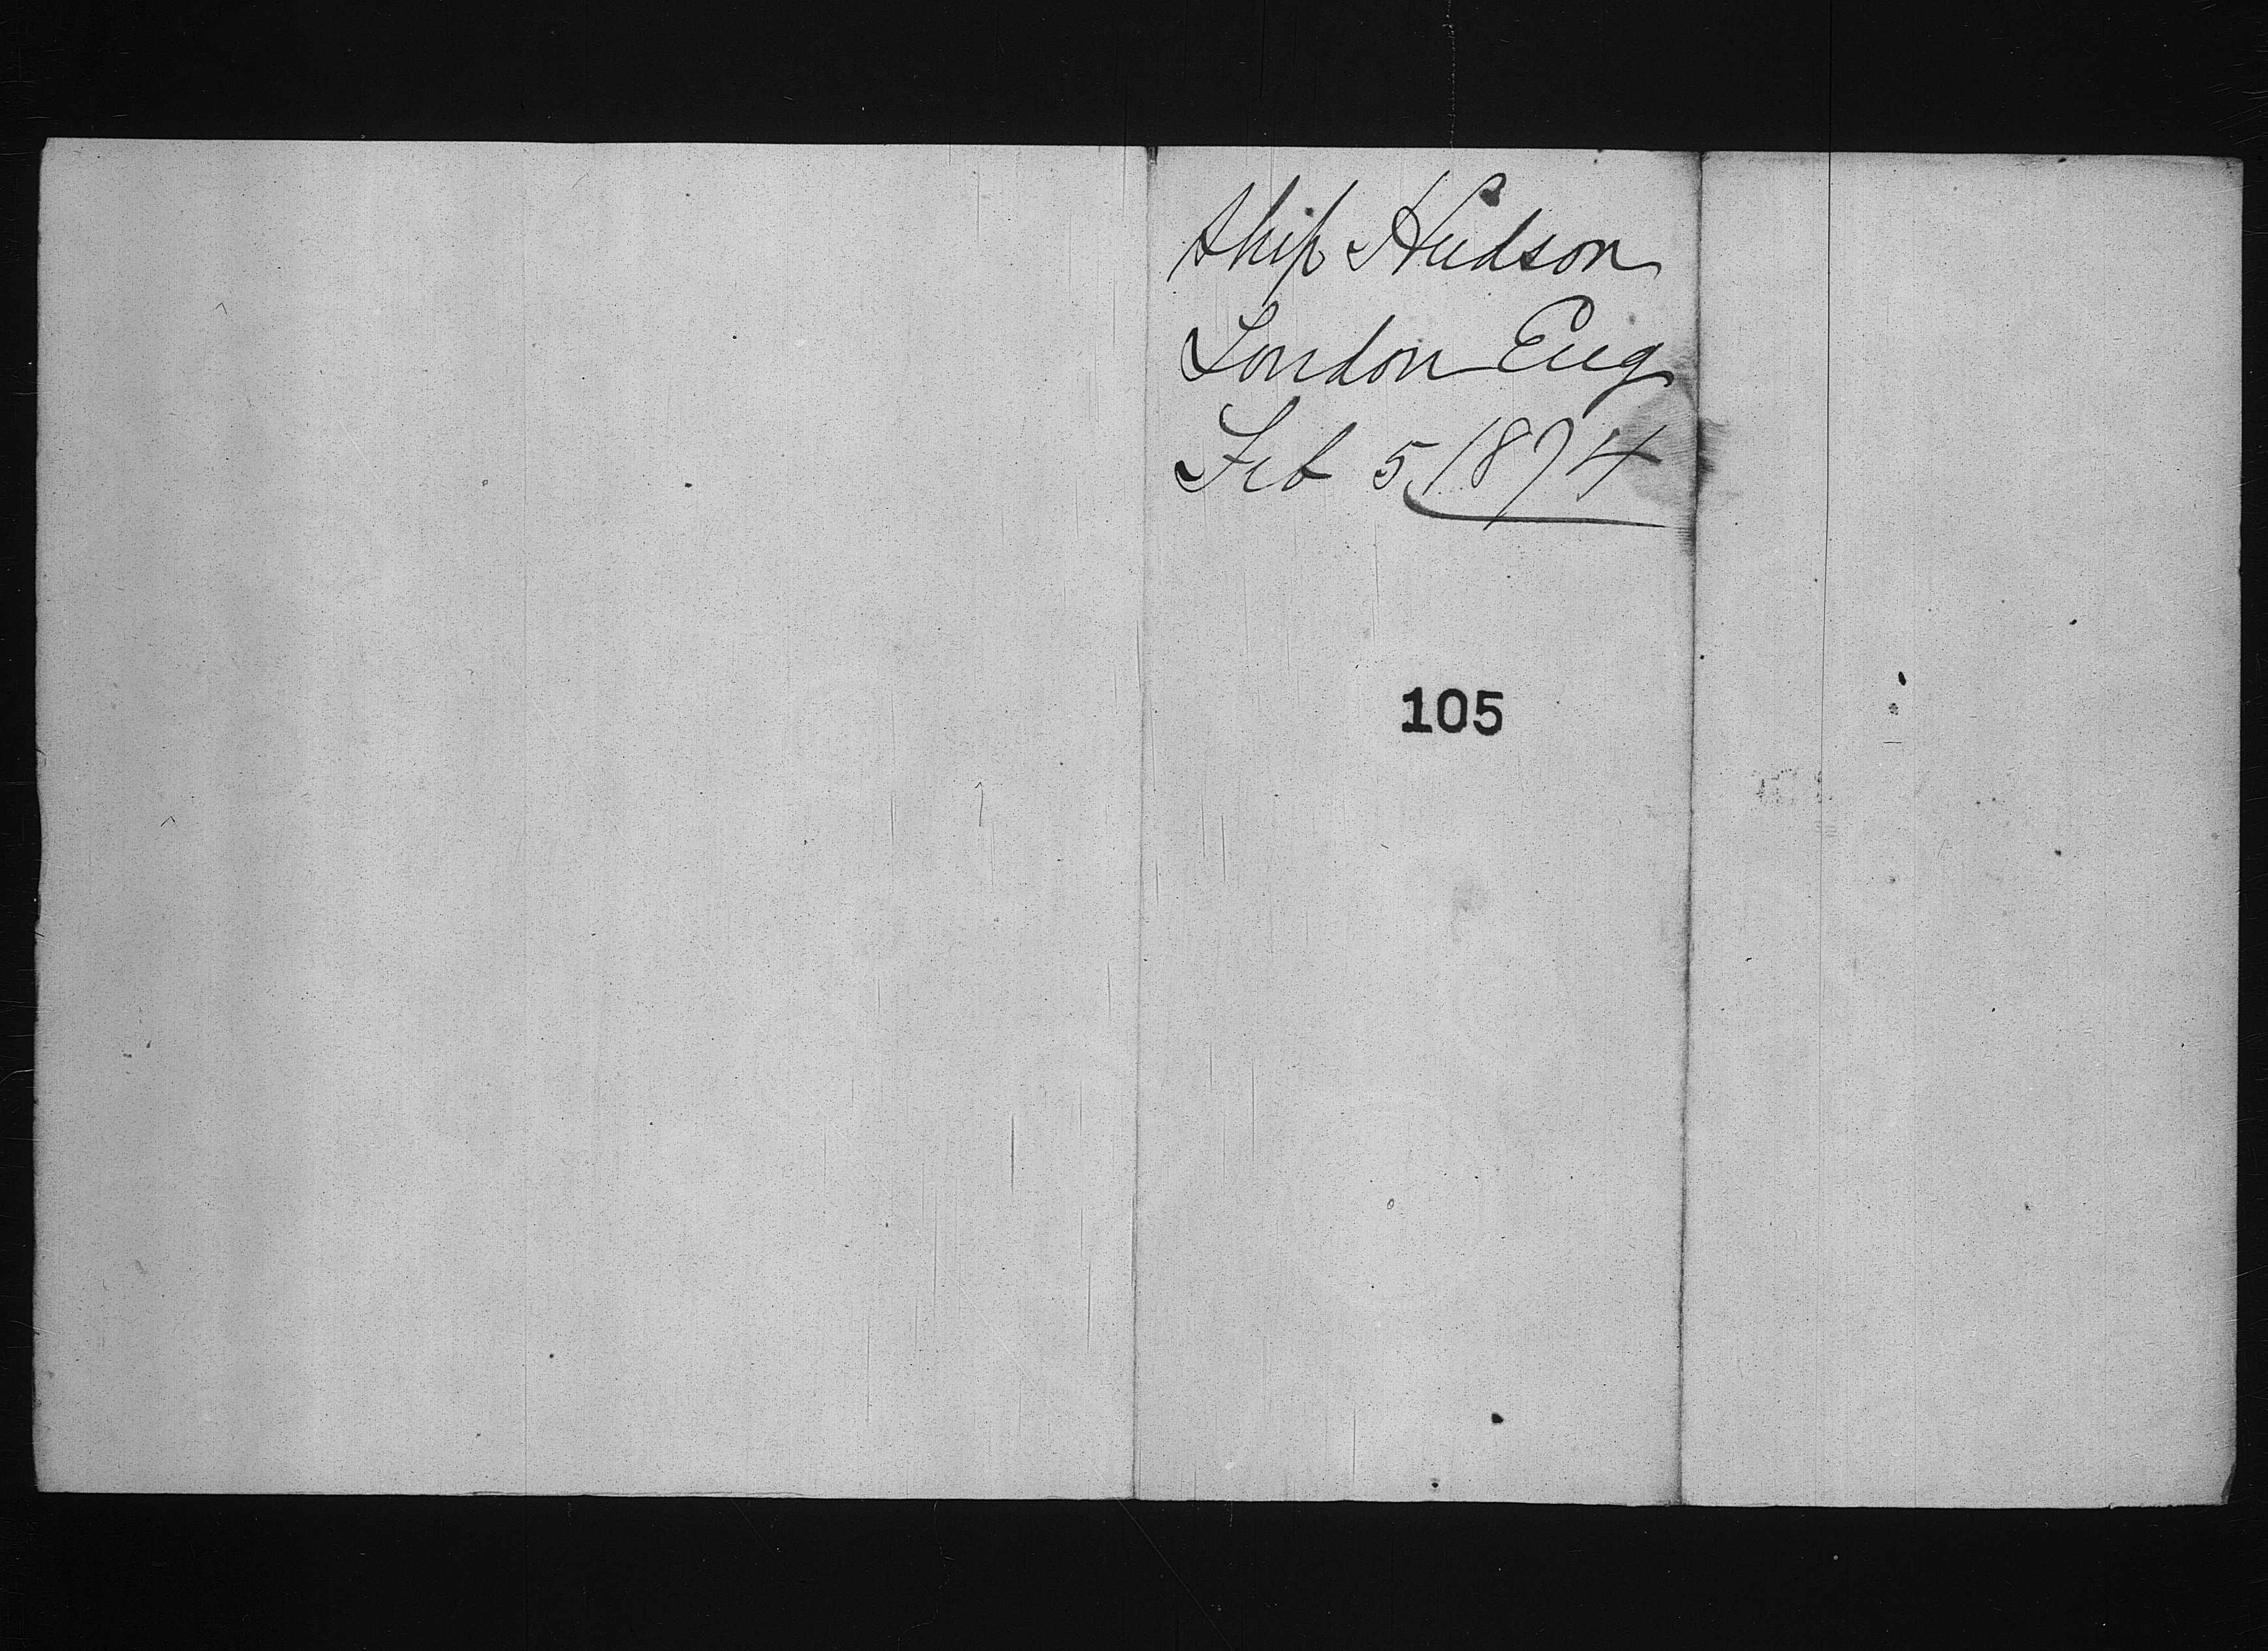 Ship Hudson
London Eng
Feb 5 1874
105